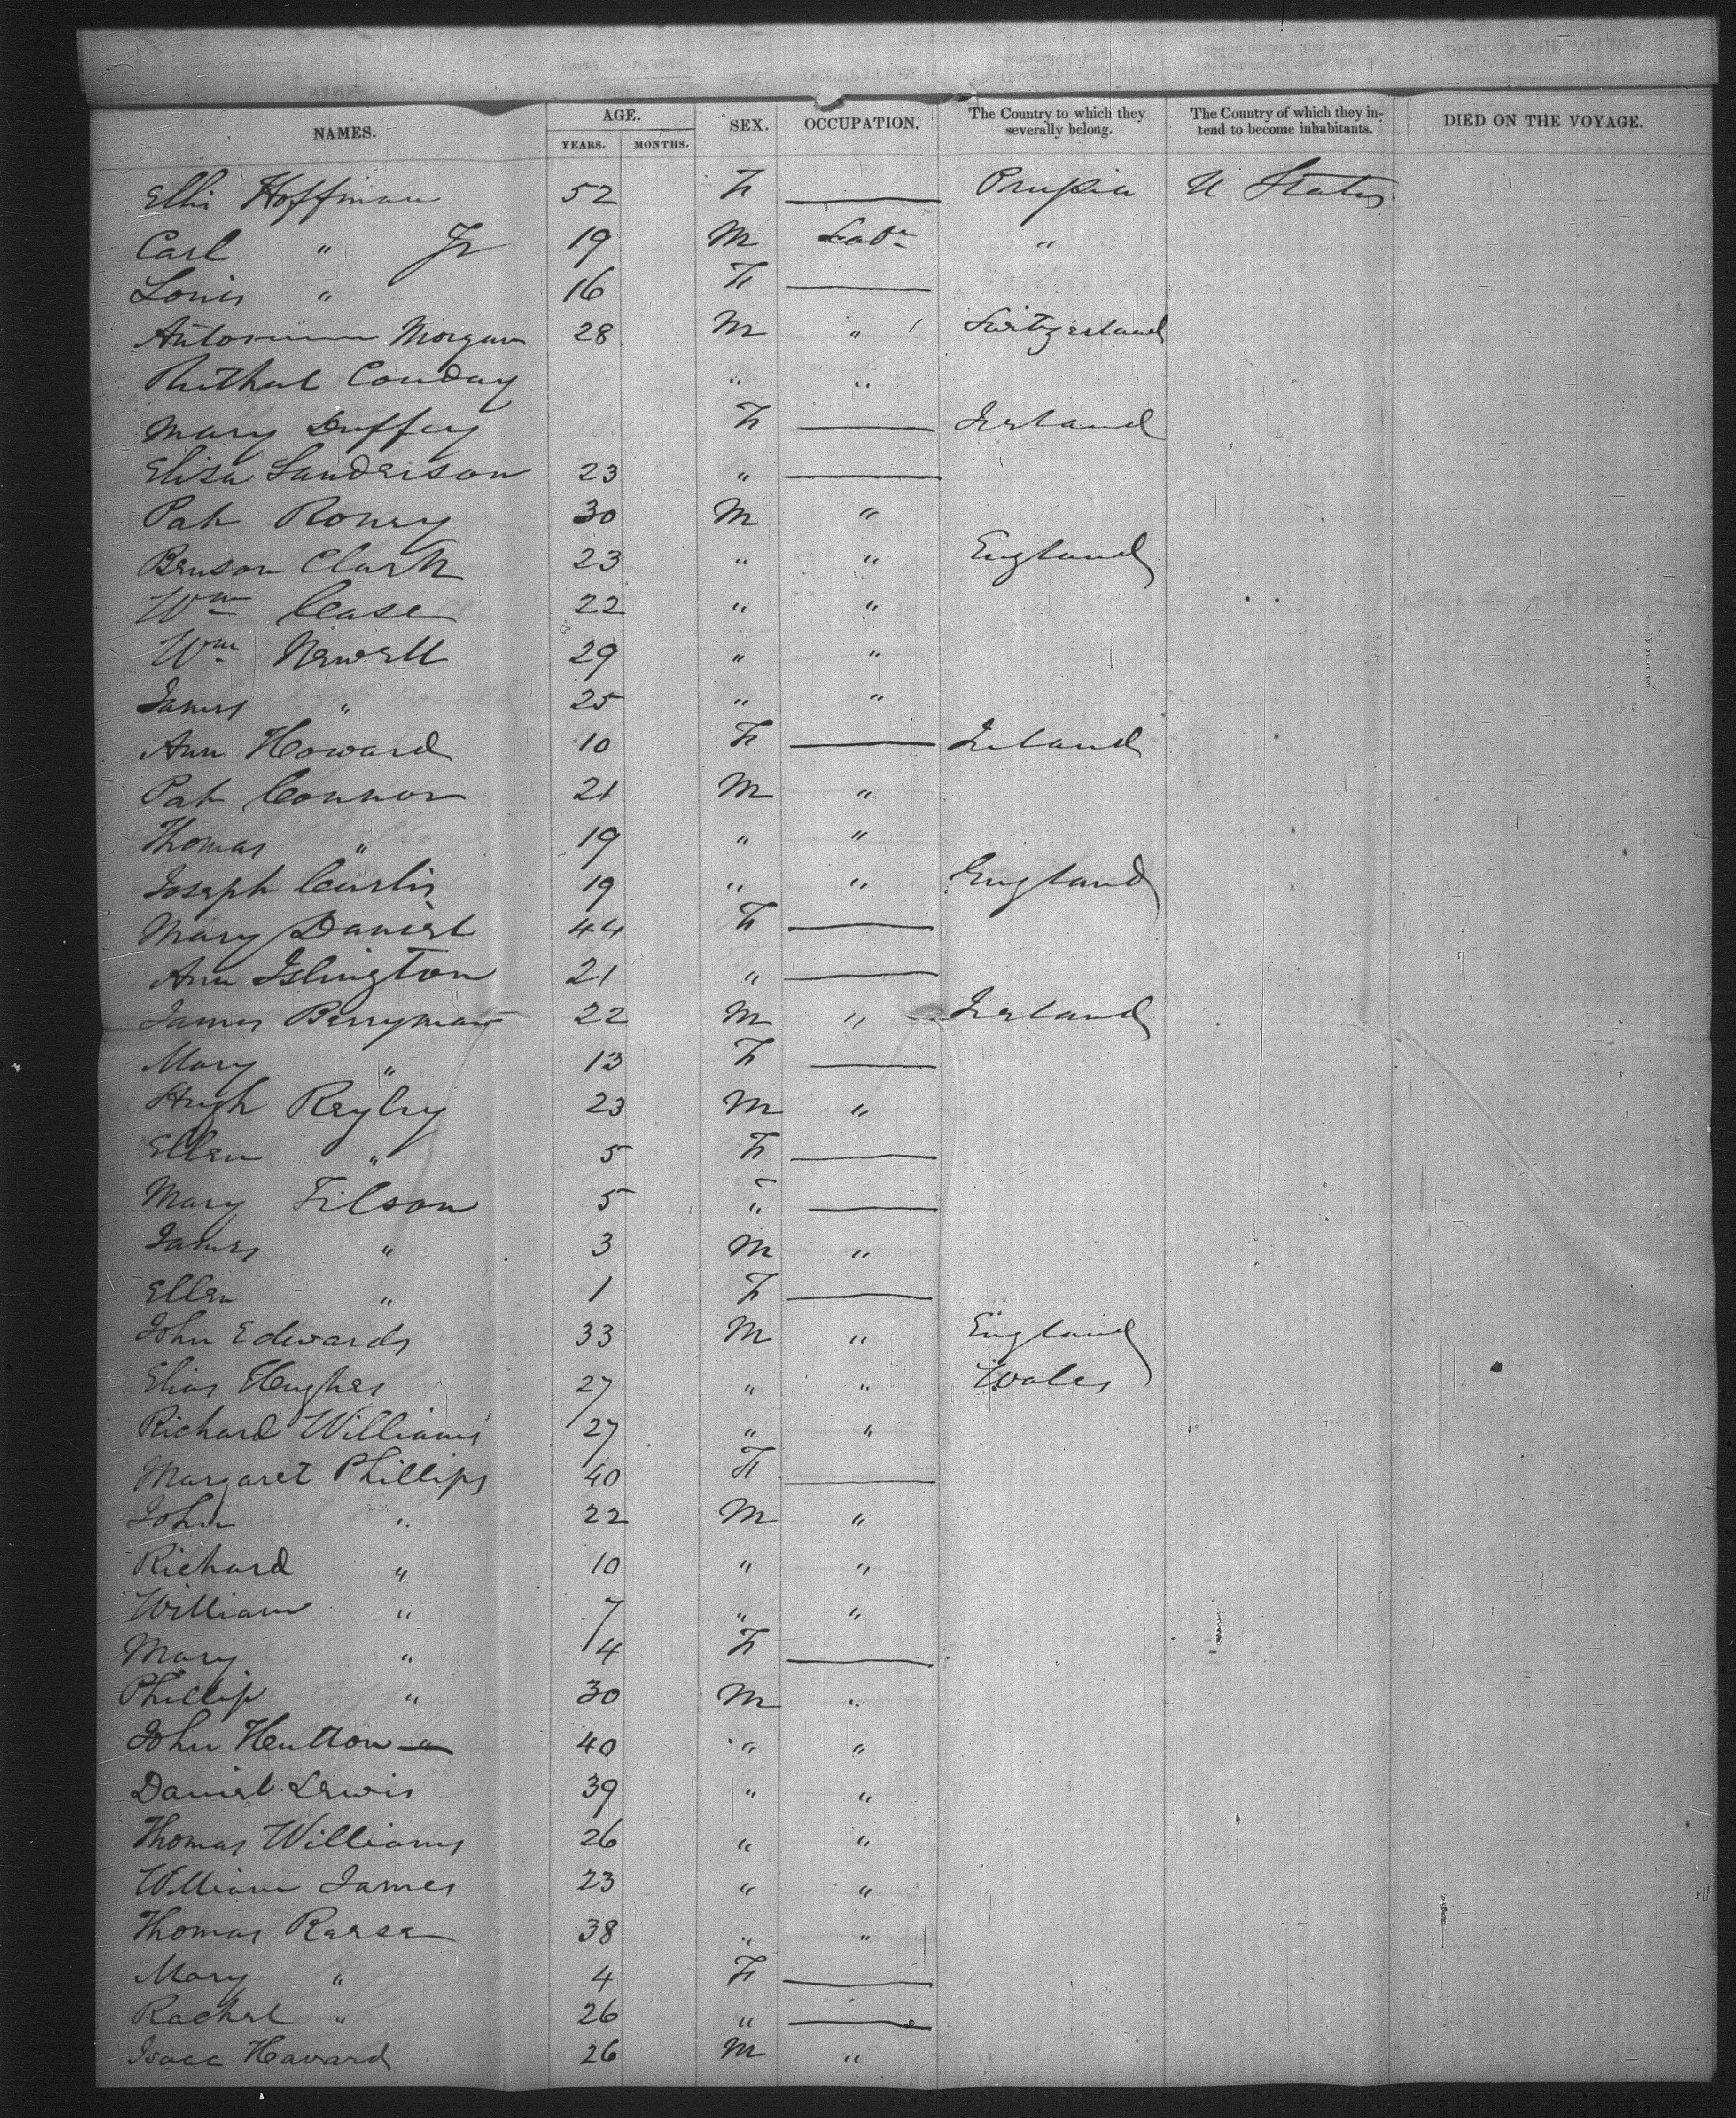 NAMES. AGE. YEARS. MONTHS. SEX. OCCUPATION. The Country to which they severally belong. The Country of which they intend to become inhabitants. DIED ON THE VOYAGE.
Hoffman 52 F —— Prussia U States
Carl " Jr 19 M Labr "
Louis " 16 F ——
Morgan 28 M " Switzerland
Conday " "
Mary Duffey F —— Ireland
Eliza Sanderson 23 " ——
Pat Roney 30 M "
Benson Clark 23 " " England
Wm Case 22 " "
Wm Newell 29 " "
James " 25 " "
Ann Howard 10 F —— Ireland
Pat Connor 21 M "
Thomas " 19 " "
Joseph Curtis 19 " " England
Mary Daniel 44 F ——
Ann Islington 21 " ——
James Berryman 22 M " Ireland
Mary " 13 F ——
Hugh Reyley 23 M "
Ellen " 5 F ——
Mary Filson 5 " ——
James " 3 M "
Ellen " 1 F ——
John Edwards 33 M " England
Elias Hughes 27 " " Wales
Richard Williams 27 " "
Margaret Phillips 40 F ——
John " 22 M "
Richard " 10 " "
William " 7 " "
Mary " 4 F ——
Phillip " 30 M "
John Hutton 40 " "
Daniel Lewis 39 " "
Thomas Williams 26 " "
William James 23 " "
Thomas Reese 38 " "
Mary " 4 F ——
Rachel " 26 " ——
Isaac Havard 26 M "